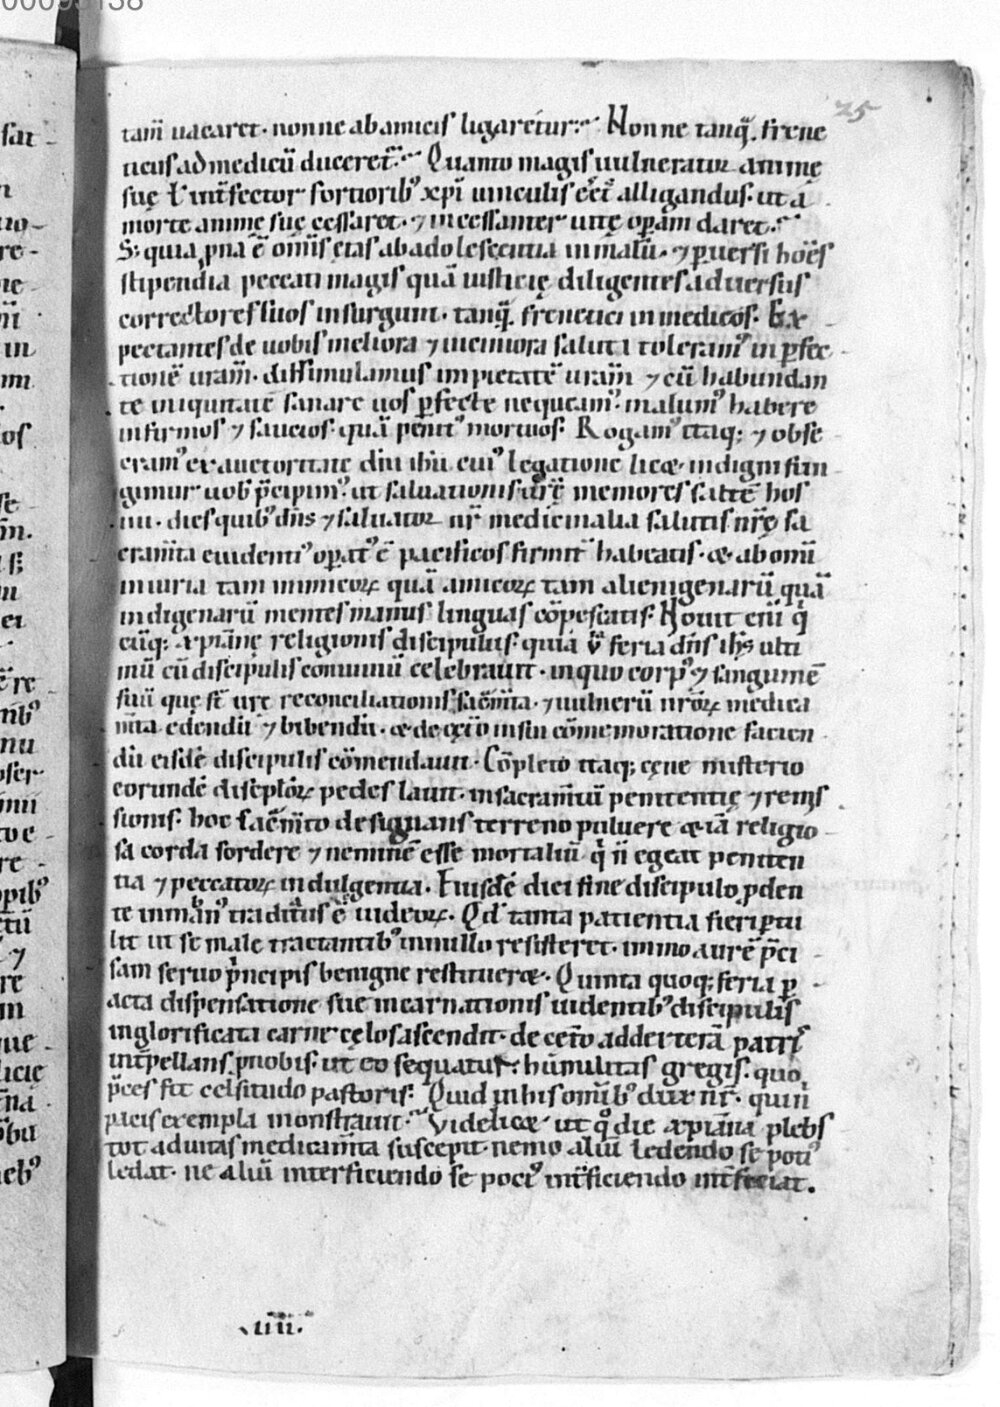 00095138
25
tam̄ uacaret· nonne abamicis ligaretur· Nonne tanq̄. frene
ticus ad medicū duceret̄· Quanto magis uulnerator animę
suę ł int̄fector fortiorib᾽ xp̄i uinculis eēt alligandus· ut a
morte animę suę cessaret· ⁊ incessanter uitę op̄am daret·
S; quia ꝓna ē om̄is ętas ab adolescentia in malū· ⁊ ꝑuersi hoēs
stipendia peccati magis quā iusticię diligentes aduersus
correctores suos insurgunt· tanq̄. frenetici in medicos· Ex
pectantes de uobis meliora ⁊ uiciniora saluti toleram᾽ inꝑfec
tionē uram̄· dissimulamus impietatē uram̄ ⁊ cū habundan
te iniquitate sanare uos ꝑfecte nequeam᾽· malum᾽ habere
infirmos ⁊ saucios· quā penit᾽ mortuos· Rogam᾽ itaq; ⁊ obse
cram᾽ ex auctoritate dn̄i ih̄u cui᾽ legatione licet indigni fun
gimur uob᾽ p̄cipim᾽· ut saluationis urę̄ memores saltē hos
dies quib᾽ dn̄s ⁊ saluator nr̄ medicinalia salutis nrę̄ sa
cram̄ta euidenti᾽ opat᾽ ē pacificos firmit̄ habeatis· et ab omī
iniuria tam inimicoꝝ quā amicoꝝ tam alienigenarū quā
indigenarū mentes manus linguas cōpescatis· Nouit enī q̇
cūq; xp̄ianę religionis discipulus· quia v̄ feria dn̄s ih̄s ulti
mū cū discipulis conuiuiū celebrauit· in quo corp᾽ ⁊ sanguinē
suū que st̄ urē reconciliationis sac̄m̄ta· ⁊ uulnerū nr̄oꝝ medica
m̄ta edendū ⁊ bibendū· et de cęt̄o in sui cōmemoratione facien
dū eisdē discipulis cōmendauit· Cōpleto itaq; cęnę misterio
eorundē discip̄loꝝ pedes lauit· in sacram̄tū penitentię ⁊ remis
sionis· hoc sac̄m̄to designans terreno puluere etiā religio
sa corda sordere ⁊ neminē esse mortaliū q̇ n̄ egeat peniten
tia ⁊ peccatoꝝ indulgentia· Eiusdē diei fine discipulo ꝓden
te in man᾽ traditus ē iudeoꝝ· Qd̄ tanta patientia fieri ꝑtu
lit ut se male tractantib᾽ in nullo resisteret· immo aurē p̄ci
sam seruo ṗncipis benigne restitueret· Quinta quoq; feria ꝑ
acta dispensatione sue incarnationis uidentib᾽ discipulis
in glorificata carne cęlos ascendit· de cet̄o ad dexterā patris
int̄pellans ꝓ nobis· ut eo sequatur humilitas gregis· quo
p̄ces fit celsitudo pastoris· Quid in his omib᾽ dux nr̄· quin
pacis exempla monstrauit· Videlicet ut q̊ die xp̄iana plebs
tot ad uitas medicam̄ta suscepit· nemo aliū ledendo se poti᾽
ledat· ne aliū interficiendo se poci᾽ int̄ficiendo int̄ficiat.
·iiii·